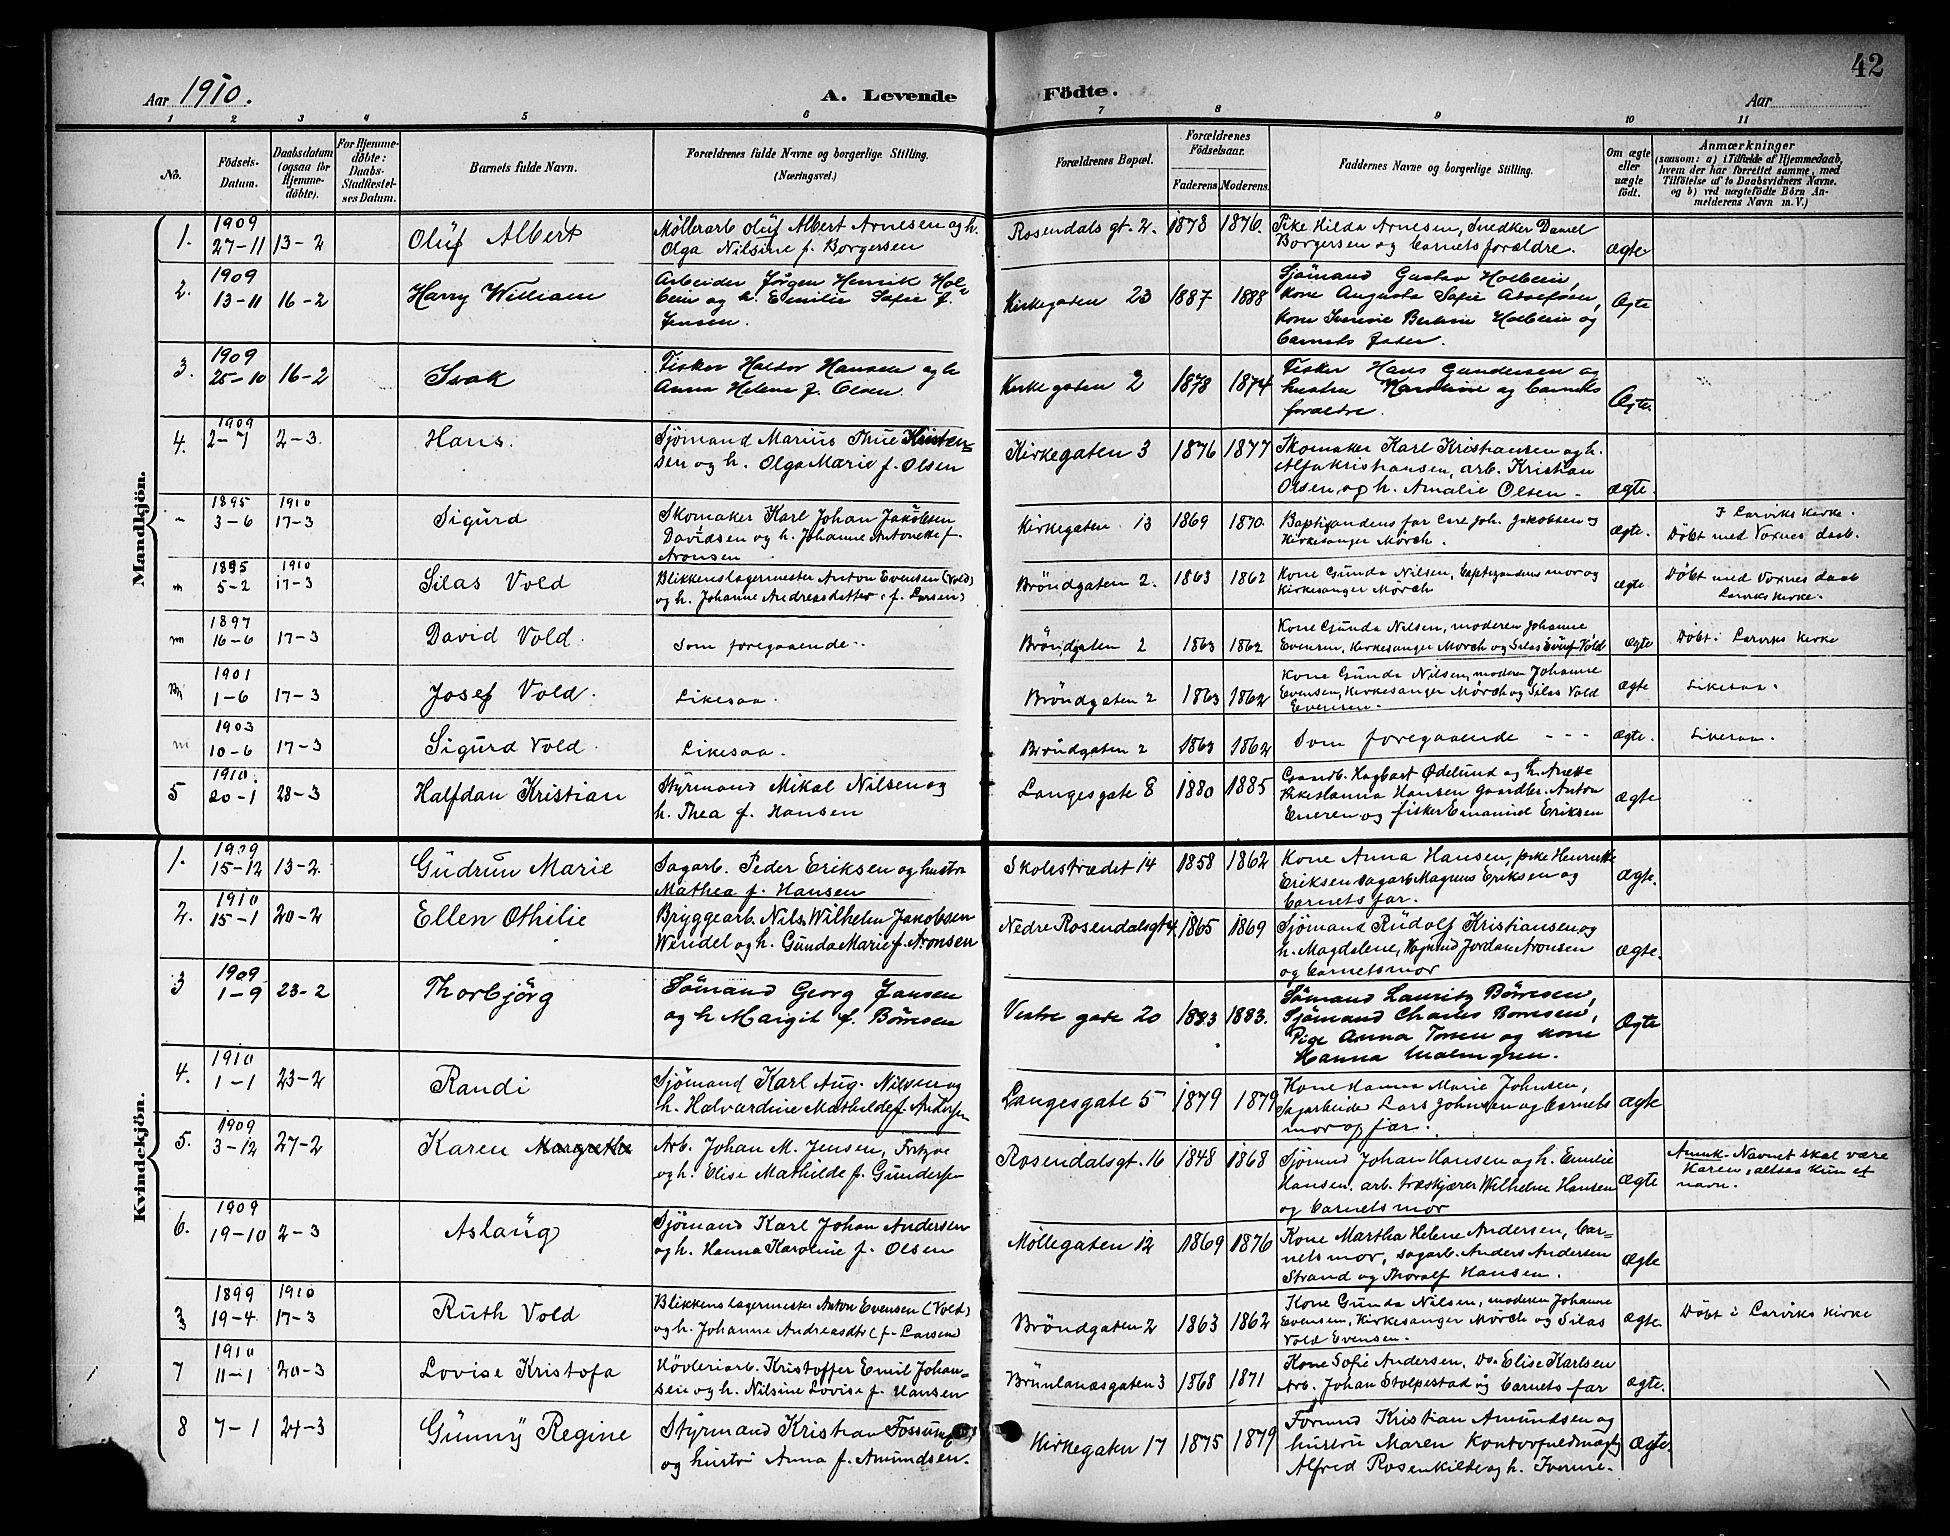 42
Aar 1910.
A. Levende
Födte.
Aar
1 2 3 4 5 6 7 8 9 10 11
No.
Födsels-
Datum.
Daabsdatum
(ogsaa for
Hjemme-
döbte).
For Hjemme-
döbte:
Daabs-
Stadfæstel-
ses Datum.
Barnets fulde Navn.
Forældrenes fulde Navne og borgerlige Stilling.
(Næringsvei.)
Forældrenes Bopæl.
Forældrenes
Födselsaar.
Faderens. Moderens.
Faddernes Navne og borgerlige Stilling.
Om ægte
eller
uægte
födt.
Anmærkninger
(saasom: a) i Tilfælde af Hjemmedaab,
hvem der har forrettet samme, med
Tilföielse af to Daabsvidners Navne.
og b) ved uægtefödte Börn An-
melderens Navn m. V.)
Mandkjön.
1.
1909
27-11
13-2
Oluf Albert
Møllerarb Oluf Albert Arnesen og h.
Olga Nilsine f. Borgersen
Rosendals gt. 2.
1878
1876.
Pike Hilda Arnesen, Snedker Daniel
Borgersen og barnets forældre.
ægte
2.
1909
13-11
16-2
Harry William
Arbeider Jørgen Henrik Hol-
bein og h. Emilie Sofie f.
Jensen.
Kirkegaten 23
1887
1888
Sjømand Gustav Holbein,
kone Augusta Sofie
kone Bertine Holbein og
barnets fader.
Ægte
3.
1909
25-10
16-2
Isak
Fisker Haldor Hansen og h
Anna Helene f. Olsen.
Kirkegaten 2
1878
1874
Fisker Hans Gundersen og
hustru Karoline og barnets
forældre.
Ægte.
4.
1909
2-7
2-3.
Hans.
Sjømand Marius Thue Kristen-
sen og h. Olga Marie f. Olsen
Kirkegaten 3
1876
1877
Skomaker Karl Kristiansen og h.
Alfa Kristiansen, arb. Kristian
Olsen og h. Amalie Olsen -
ægte.
"
1895
3-6
1910
17-3
Sigurd
Skomaker Karl Johan Jakobsen
Davidsen og h. Johanne Antonette f.
Aronsen
Kirkegaten 13
1869
1870.
Baptizandens far Carl Joh. Jakobsen og
Kirkesanger Mørch.
ægte.
I Larviks Kirke.
Døbt med Voxnes daab.
"
1895
5-2
1910
17-3
Silas Vold
Blikkenslagermester Anton Evensen (Vold)
og h. Johanne Andreasdatter (f. Larsen)
Bröndgaten 2.
1863
1862
Kone Gunda Nilsen, baptizandens mor og
Kirkesanger Mørch
ægte.
Døbt med Voxnes daab
Larviks Kirke.
"
1897
16-6
17-3
David Vold.
Som foregaaende -
Bröndgaten 2
1863
1862
Kone Gunda Nilsen, moderen Johanne
Evensen, Kirkesanger Mørch og Silas Vold
ægte
Døbt i Larviks Kirke
1901
1-6
17-3
Josef Vold.
Likesaa.
Bröndgaten 2
1863
1862
Kone Gunda Nilsen, moder Johanne
Evensen, Kirkesanger Mørch og Silas Vold
Evensen.
ægte
Likesaa.
1903
10-6
17-3
Sigurd Vold.
Likesaa.
Bröndgaten 2
1863
1862
Som foregaaende - - -
ægte.
Likesaa.
5
1910.
20-1
28-3
Halfdan Kristian
Styrmand Mikal Nilsen og
h. Thea f. Hansen
Langesgate 8
1880
1885
Hagbart Ødelund og h. Anette
Pike Hanna Hansen
og fisker Emanuel Eriksen
ægte
Kvindekjön.
1.
1909
15-12
13-2.
Gudrun Marie
Sagarb. Peder Eriksen og hustru
Mathea f. Hansen
Skolestrædet 14
1858
1862
Kone Anna Hansen, pike Henriette
Eriksen sagarb. Magnus Eriksen og
barnets far.
ægte.
2.
1910
15-1
20-2
Ellen Othilie
Bryggearb. Nils Wilhelm Jakobsen
Wendel og h. Gunda Marie f. Aronsen
Nedre Rosendalsgt 4
1865
1869
Sjømand Rudolf Kristiansen og
h. Magdalene, Jordan Aronsen
og barnets mor
ægte.
3
1909
1-9
23-2
Thorbjörg
Sømand Georg Jansen
og h Margit f. Børresen
Vestre gade 20
1883
1883.
Sømand Lauritz Børresen,
Sjømand Charles Børresen,
Pige Anna Torsen og kone
Hanna Malmgren.
Ægte
4.
1910
1-1
23-2
Randi
Sjømand Karl Aug. Nilsen og
h. Halvardine Mathilde f. Andersen
Langesgate 5
1879
1879
Kone Hanna Marie Johnsen,
Sagarbeider Lars Johnsen og barnets
mor og far.
ægte
5.
1909
3-12
27-2
Karen Margrethe
Arb. Johan M. Jensen,
og h. Elise Mathilde f. Gundersen
Rosendalsgt. 16
1848
1868
Sjømand Johan Hansen og h. Emilie
Hansen. arb. træskjærer Wilhelm Hansen
og barnets mor
ægte
Anmk. Navnet skal være
Karen, altsaa kun et
navn.
6.
1909
19-10
2-3
Aslaug
Sjømand Karl Johan Andersen
og h. Hanna Karoline f. Olsen
Møllegaten 12
1869
1876
Kone Martha Helene Andersen, bar-
nets mor, sagarb. Anders Andersen
Strand og Thoralf Hansen.
ægte
1899
19-4
1910
17-3
Ruth Vold
Blikkenslagermester Anton Evensen (Vold)
og h. Johanne Andreasdtr (f. Larsen)
Bröndgaten 2
1863
1862
Kone Gunda Nilsen, moderen Johanne
Evensen, Kirkesanger Mørch og Silas
Vold Evensen.
ægte.
Døbt i Larviks Kirke
7
1910
11-1
20-3
Lovise Kristofa
Høvleriarb. Kristoffer Emil Johan-
sen og h. Nilsine Lovise f. Hansen
Brunlanæsgaten 3
1868
1871
Kone Sofie Andersen, Do. Elise Karlsen
Arb. Johan Stolpestad og barnets far
ægte.
8
7-1
24-3
Gunny Regine
Styrmand Kristian Fossum
og hustru Anna f. Amundsen.
Kirkegaten 17
1875
1879
Formand Kristian Amundsen og
hustru Maren Kontorfuldmægtig
Alfred Rosenkilde og h. Iverine.
Ægte.